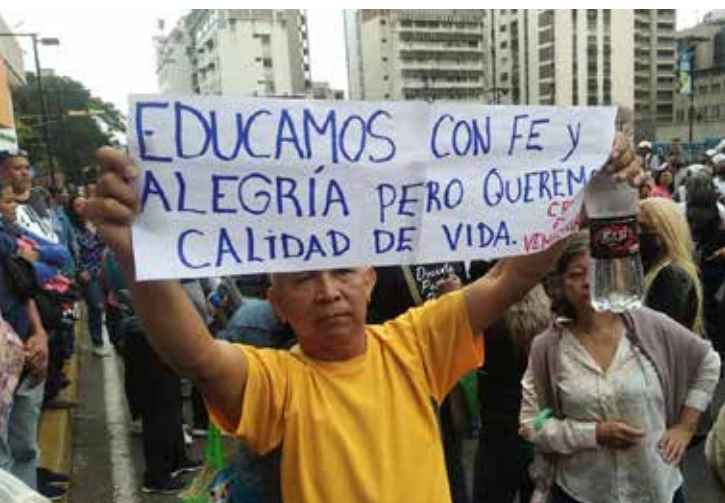 EDUCAMOS CON FE Y
ALEGRÍA PERO QUEREM
CALIDAD DE VIDA.